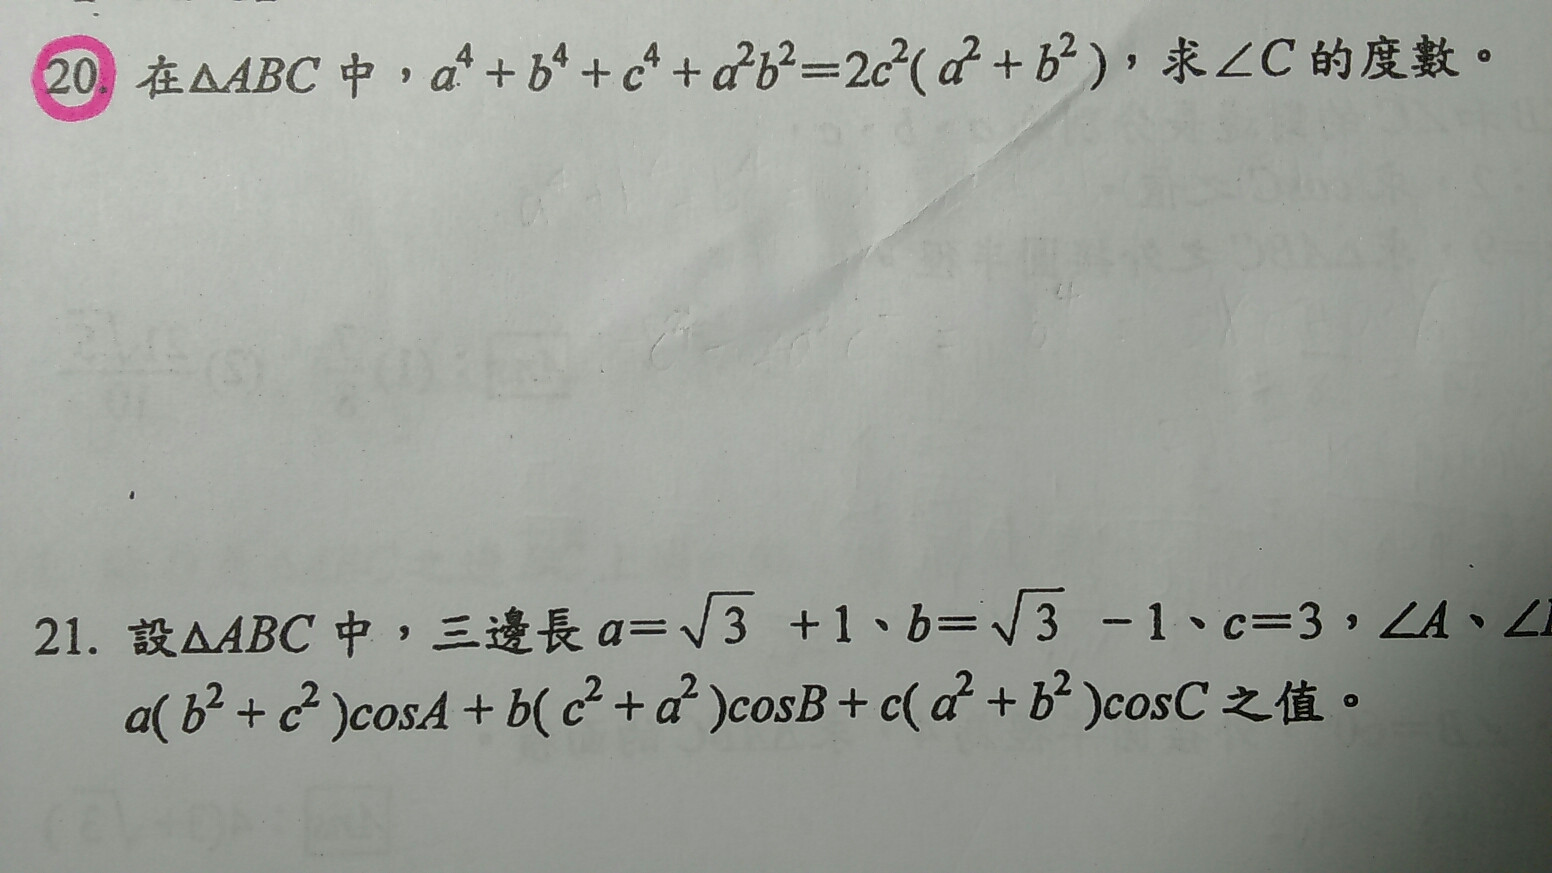 20. 在△ABC 中，a⁴ + b⁴ + c⁴ + a²b²=2c²( a² + b² )，求∠C 的度數。
21. 設△ABC 中，三邊長 a=√3 +1、b=√3 −1、c=3，∠A、∠
a( b² + c² )cosA + b( c² + a² )cosB + c( a² + b² )cosC 之值。